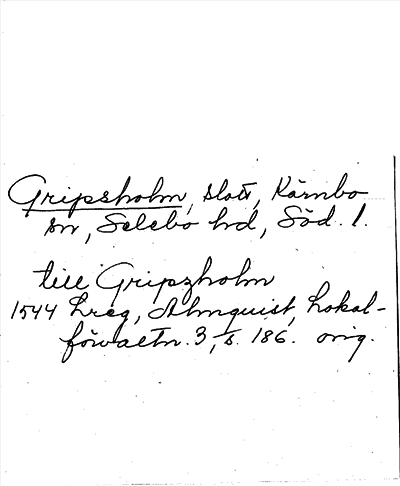 Gripsholm, slott, Kärnbo
sn, Selebo hd, Söd. l.
till Gripzholm
1544 Lreg, Almquist, Lokal-
förvaltn. 3, s. 186. orig.